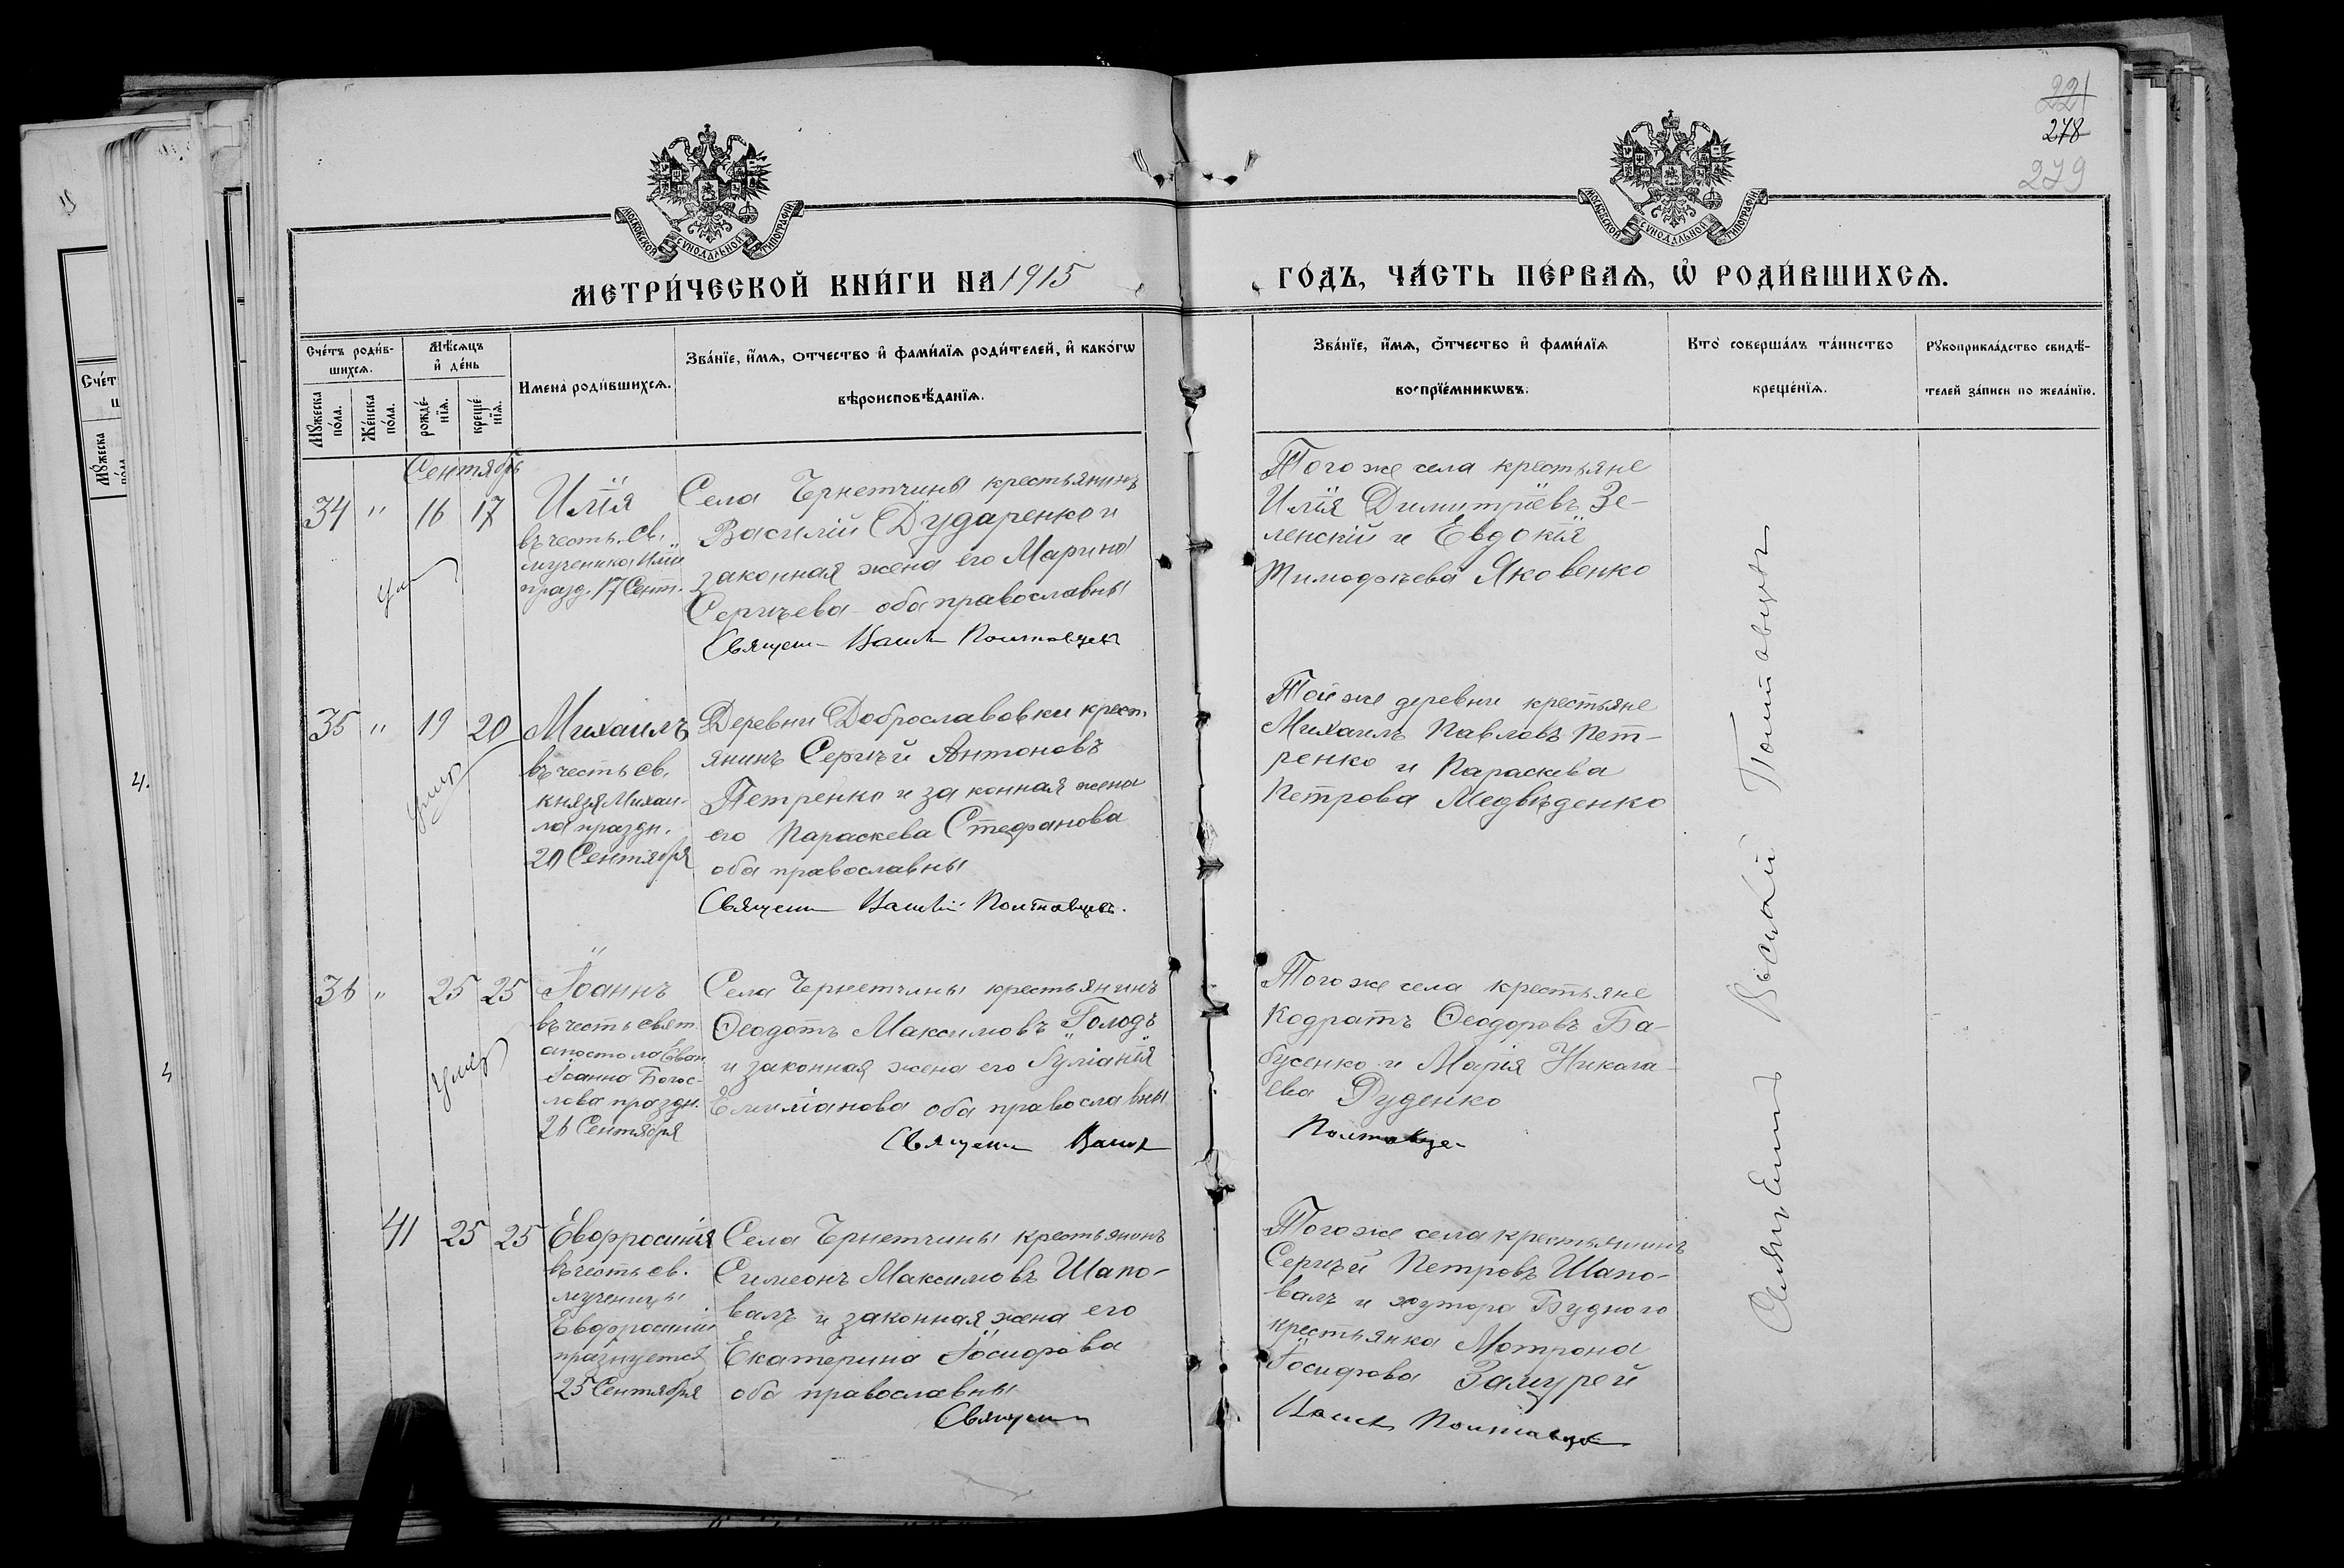 221
278
279
МОСКОВСКОЙ СѴНОДАЛЬНОЙ ТИПОГРАФІИ
МОСКОВСКОЙ СѴНОДАЛЬНОЙ ТИПОГРАФІИ
МЕТРИ́ЧЕСКОЙ КНИ́ГИ НА 1915
ГО́ДЪ, ЧА́СТЬ ПЕ́РВАѦ, Ѡ҆ РОДИ́ВШИХСѦ.
Сче́тъ роди́в-
шихсѧ.
Мꙋ́жеска по́ла.
Же́нска по́ла.
Мѣ́сѧцъ
и҆ де́нь
рожде́-
нїѧ.
креще́-
нїѧ.
Имена̀ роди́вшихсѧ.
Зва́нїе, и҆́мѧ, ѻ҆́тчество и҆ фами́лїѧ роди́телей, и҆ како́гѡ
вѣроисповѣ́данїѧ.
Зва́нїе, и҆́мѧ, ѻ҆́тчество и҆ фами́лїѧ
воспрїе́мникѡвъ.
Кто̀ соверша́лъ та́инство
креще́нїѧ.
Рꙋкоприкла́дство свидѣ́-
телей за́писи по жела́нїю.
Сентябрь
34 " 16 17
Илія
въ честь св.
мученика Иліи
празд. 17 Сент.
Села Чернетчины крестьянинъ
Василій Дударенко и
законная жена его Марина
Сергѣева оба православны
Священ. Василій Полтавцевъ
Того же села крестьяне
Илія Димитріевъ Зе-
ленскій и Евдокія
Тимофѣева Яковенко
35 " 19 20
умер
Михаилъ
въ честь св.
князя Михаи-
ла праздн.
20 Сентября
Деревни Доброславовки крест.
янинъ Сергѣй Антоновъ
Петренко и законная жена
его Параскева Стефанова
оба православны
Священ. Василій Полтавцевъ.
Той же деревни крестьяне
Михаилъ Павловъ Пет-
ренко и Параскева
Петрова Медвѣденко
36 " 25 25
умер
Іоаннъ
въ честь свят.
апостола Еван.
Іоанна Богос-
лова праздн.
26 Сентября
Села Чернетчины крестьянинъ
Ѳеодотъ Максимовъ Голодъ
и законная жена его Іуліанія
Емиліанова оба православны
Священ. Василій
Того же села крестьяне
Кодратъ Ѳеодоровъ Ба-
бусенко и Марія Никола-
ева Руденко
Полтавцев
41 25 25
Евфросинія
въ честь св.
мученицы
Евфросиніи
празнуется
25 Сентября
Села Чернетчины крестьянинъ
Симеонъ Максимовъ Шапо-
валъ и законная жена его
Екатерина Іосифова
оба православны
Священ.
Того же села крестьянинъ
Сергѣй Петровъ Шапо-
валъ и хутора Будного
крестьянка Мотрона
Іосифова Замурей
Василій Полтавцев
Священникъ Василій Полтавцевъ